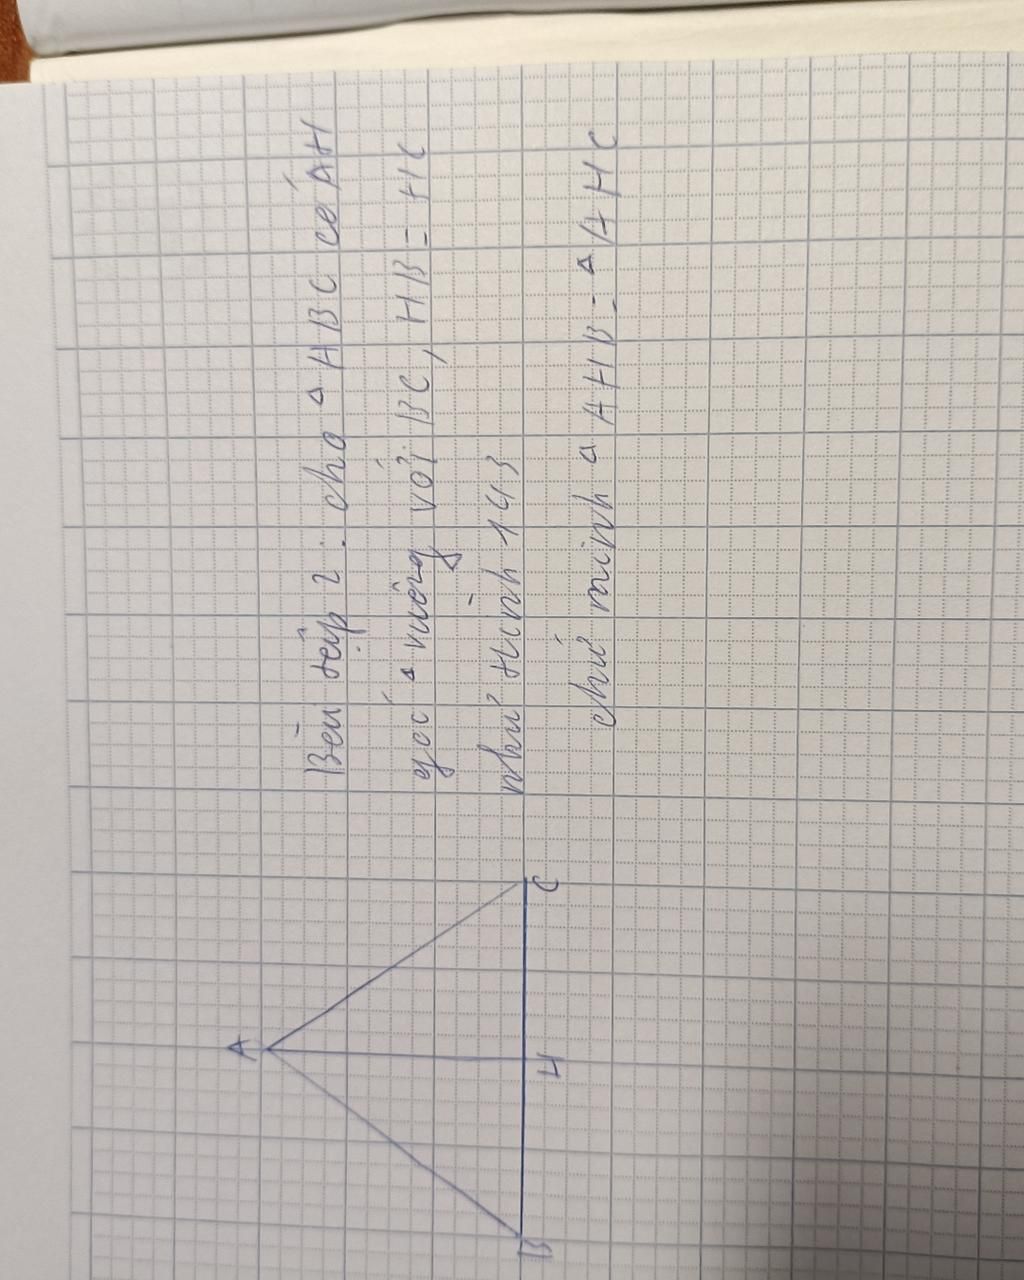 A
B
H
C
Bài tập 2: cho △ ABC có AH
góc △ vuông với BC, HB = HC
như Hình 143
chứ minh △ AHB = △ AHC